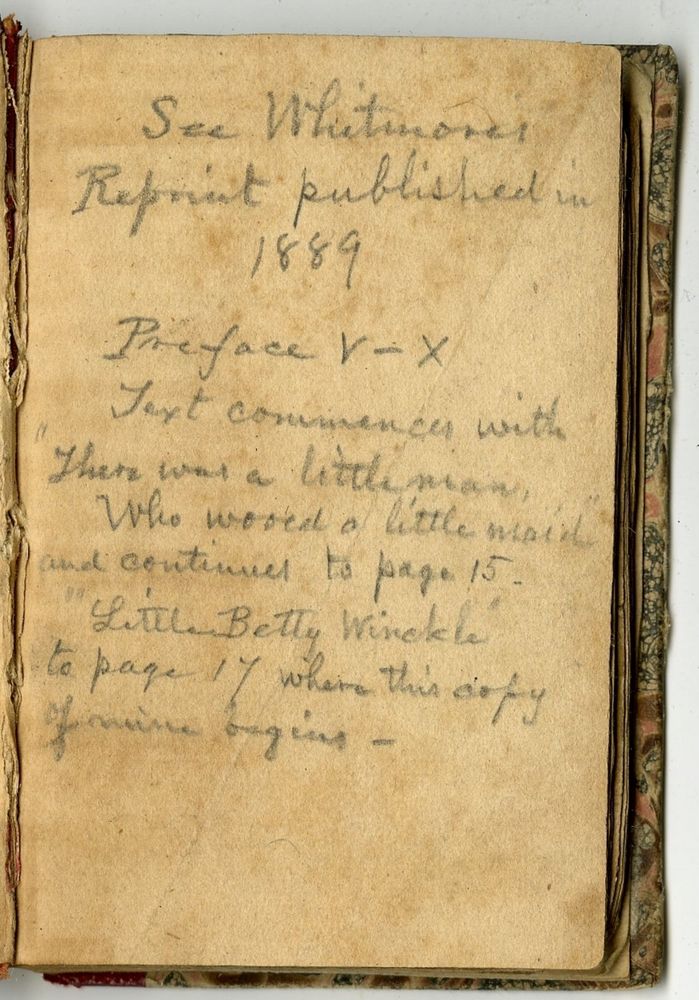 See Whitmore's
Reprint published in
1889
Preface V - X
Text commences with
"There was a little man,
Who wooed a little maid"
and continues to page 15 -
"Little Betty Winckle"
to page 17 where this copy
of mine begins -